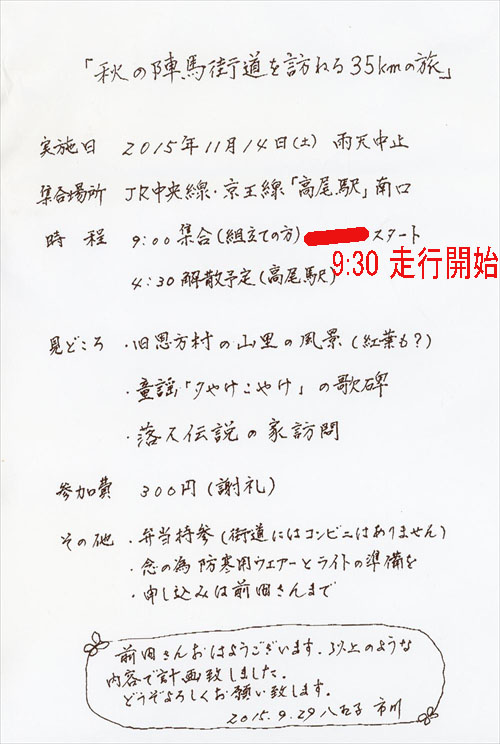 「秋の陣馬街道を訪ねる35kmの旅」
実施日 2015年11月14日(土) 雨天中止
集合場所 JR中央線・京王線「高尾駅」南口
時程 9:00集合(組立ての方) スタート
9:30 走行開始
4:30解散予定(高尾駅)
見どころ ・旧恩方村の山里の風景(紅葉も?)
・童謡「夕やけこやけ」の歌碑
・落人伝説の家訪問
参加費 300円(謝礼)
その他 ・弁当持参(街道にはコンビニはありません)
・念の為防寒用ウエアーとライトの準備を
・申し込みは前田さんまで
前田さんおはようございます.以上のような
内容で計画致しました.
どうぞよろしくお願い致します.
2015.9.29 八王子 市川